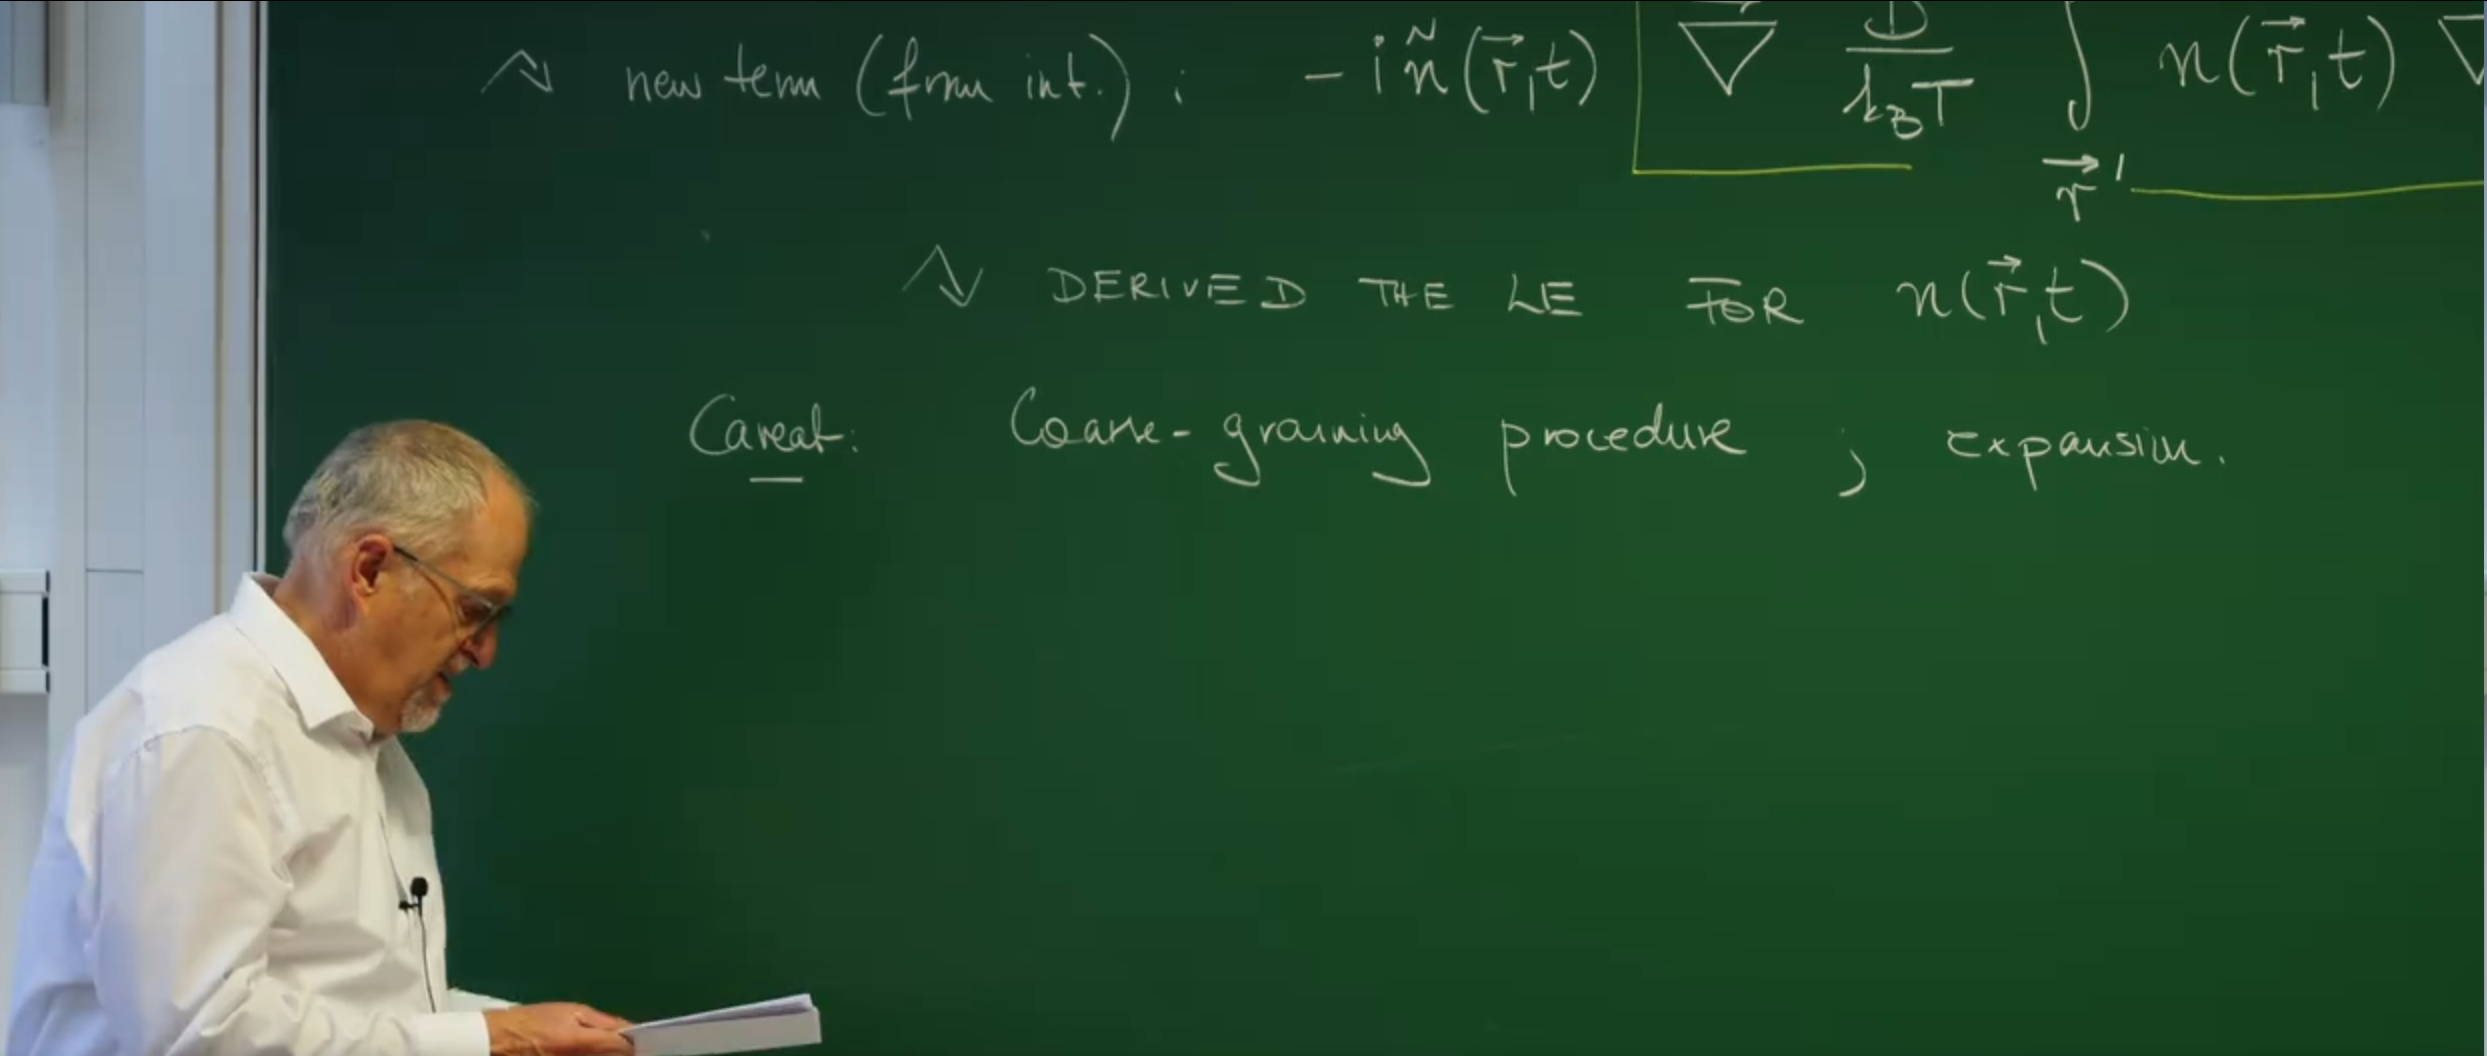 ⤳ new term (from int.) : − i ñ(r⃗,t) ∇⃗ D/(k_B T) ∫_{r⃗'} n(r⃗,t) ∇
⤳ DERIVED THE LE FOR n(r⃗,t)
Caveat: Coarse-graining procedure ; expansion.